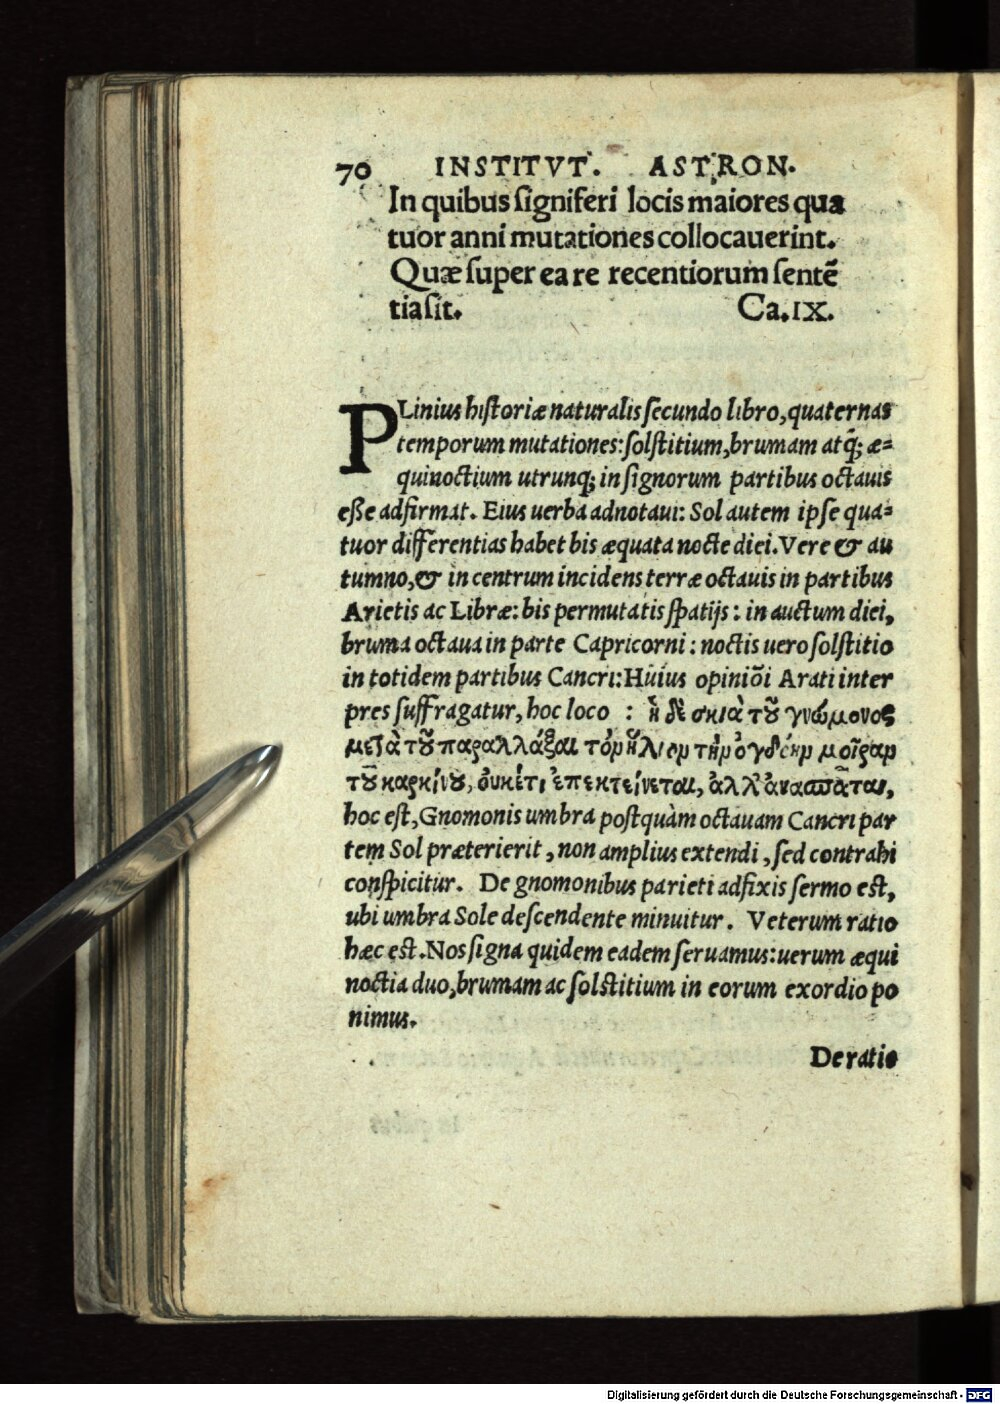 70 INSTITVT. ASTRON.
In quibus ſigniferi locis maiores qua
tuor anni mutationes collocauerint.
Quæ ſuper ea re recentiorum ſentē
tia ſit. Ca. IX.
PLinius hiſtoriæ naturalis ſecundo libro, quaternas
temporum mutationes: ſolſtitium, brumam atq́; æ-
quinoctium utrunq; in ſignorum partibus octauis
eſſe adfirmat. Eius uerba adnotaui: Sol autem ipſe qua-
tuor differentias habet bis æquata nocte diei. Vere & au
tumno, & in centrum incidens terræ octauis in partibus
Arietis ac Libræ: bis permutatis ſpatijs: in auctum diei,
bruma octaua in parte Capricorni: noctis uero ſolſtitio
in totidem partibus Cancri: Huius opiniōi Arati inter
pres ſuffragatur, hoc loco : ἡ δὲ σκιὰ τοῦ γνώμονος
μετὰ τοῦ παραλλάξαι τὸν ἥλιον τὴν ὀγδόην μοῖραν
τοῦ καρκίνου, ὀυκέτι ἐπεκτείνεται, ἀλλ' ἀνασπᾶται,
hoc eſt, Gnomonis umbra poſtquàm octauam Cancri par
tem Sol præterierit, non amplius extendi, ſed contrahi
conſpicitur. De gnomonibus parieti adfixis ſermo eſt,
ubi umbra Sole deſcendente minuitur. Veterum ratio
hæc eſt. Nos ſigna quidem eadem ſeruamus: uerum æqui
noctia duo, brumam ac ſolſtitium in eorum exordio po
nimus.
De ratio
Digitalisierung gefördert durch die Deutsche Forschungsgemeinschaft - DFG